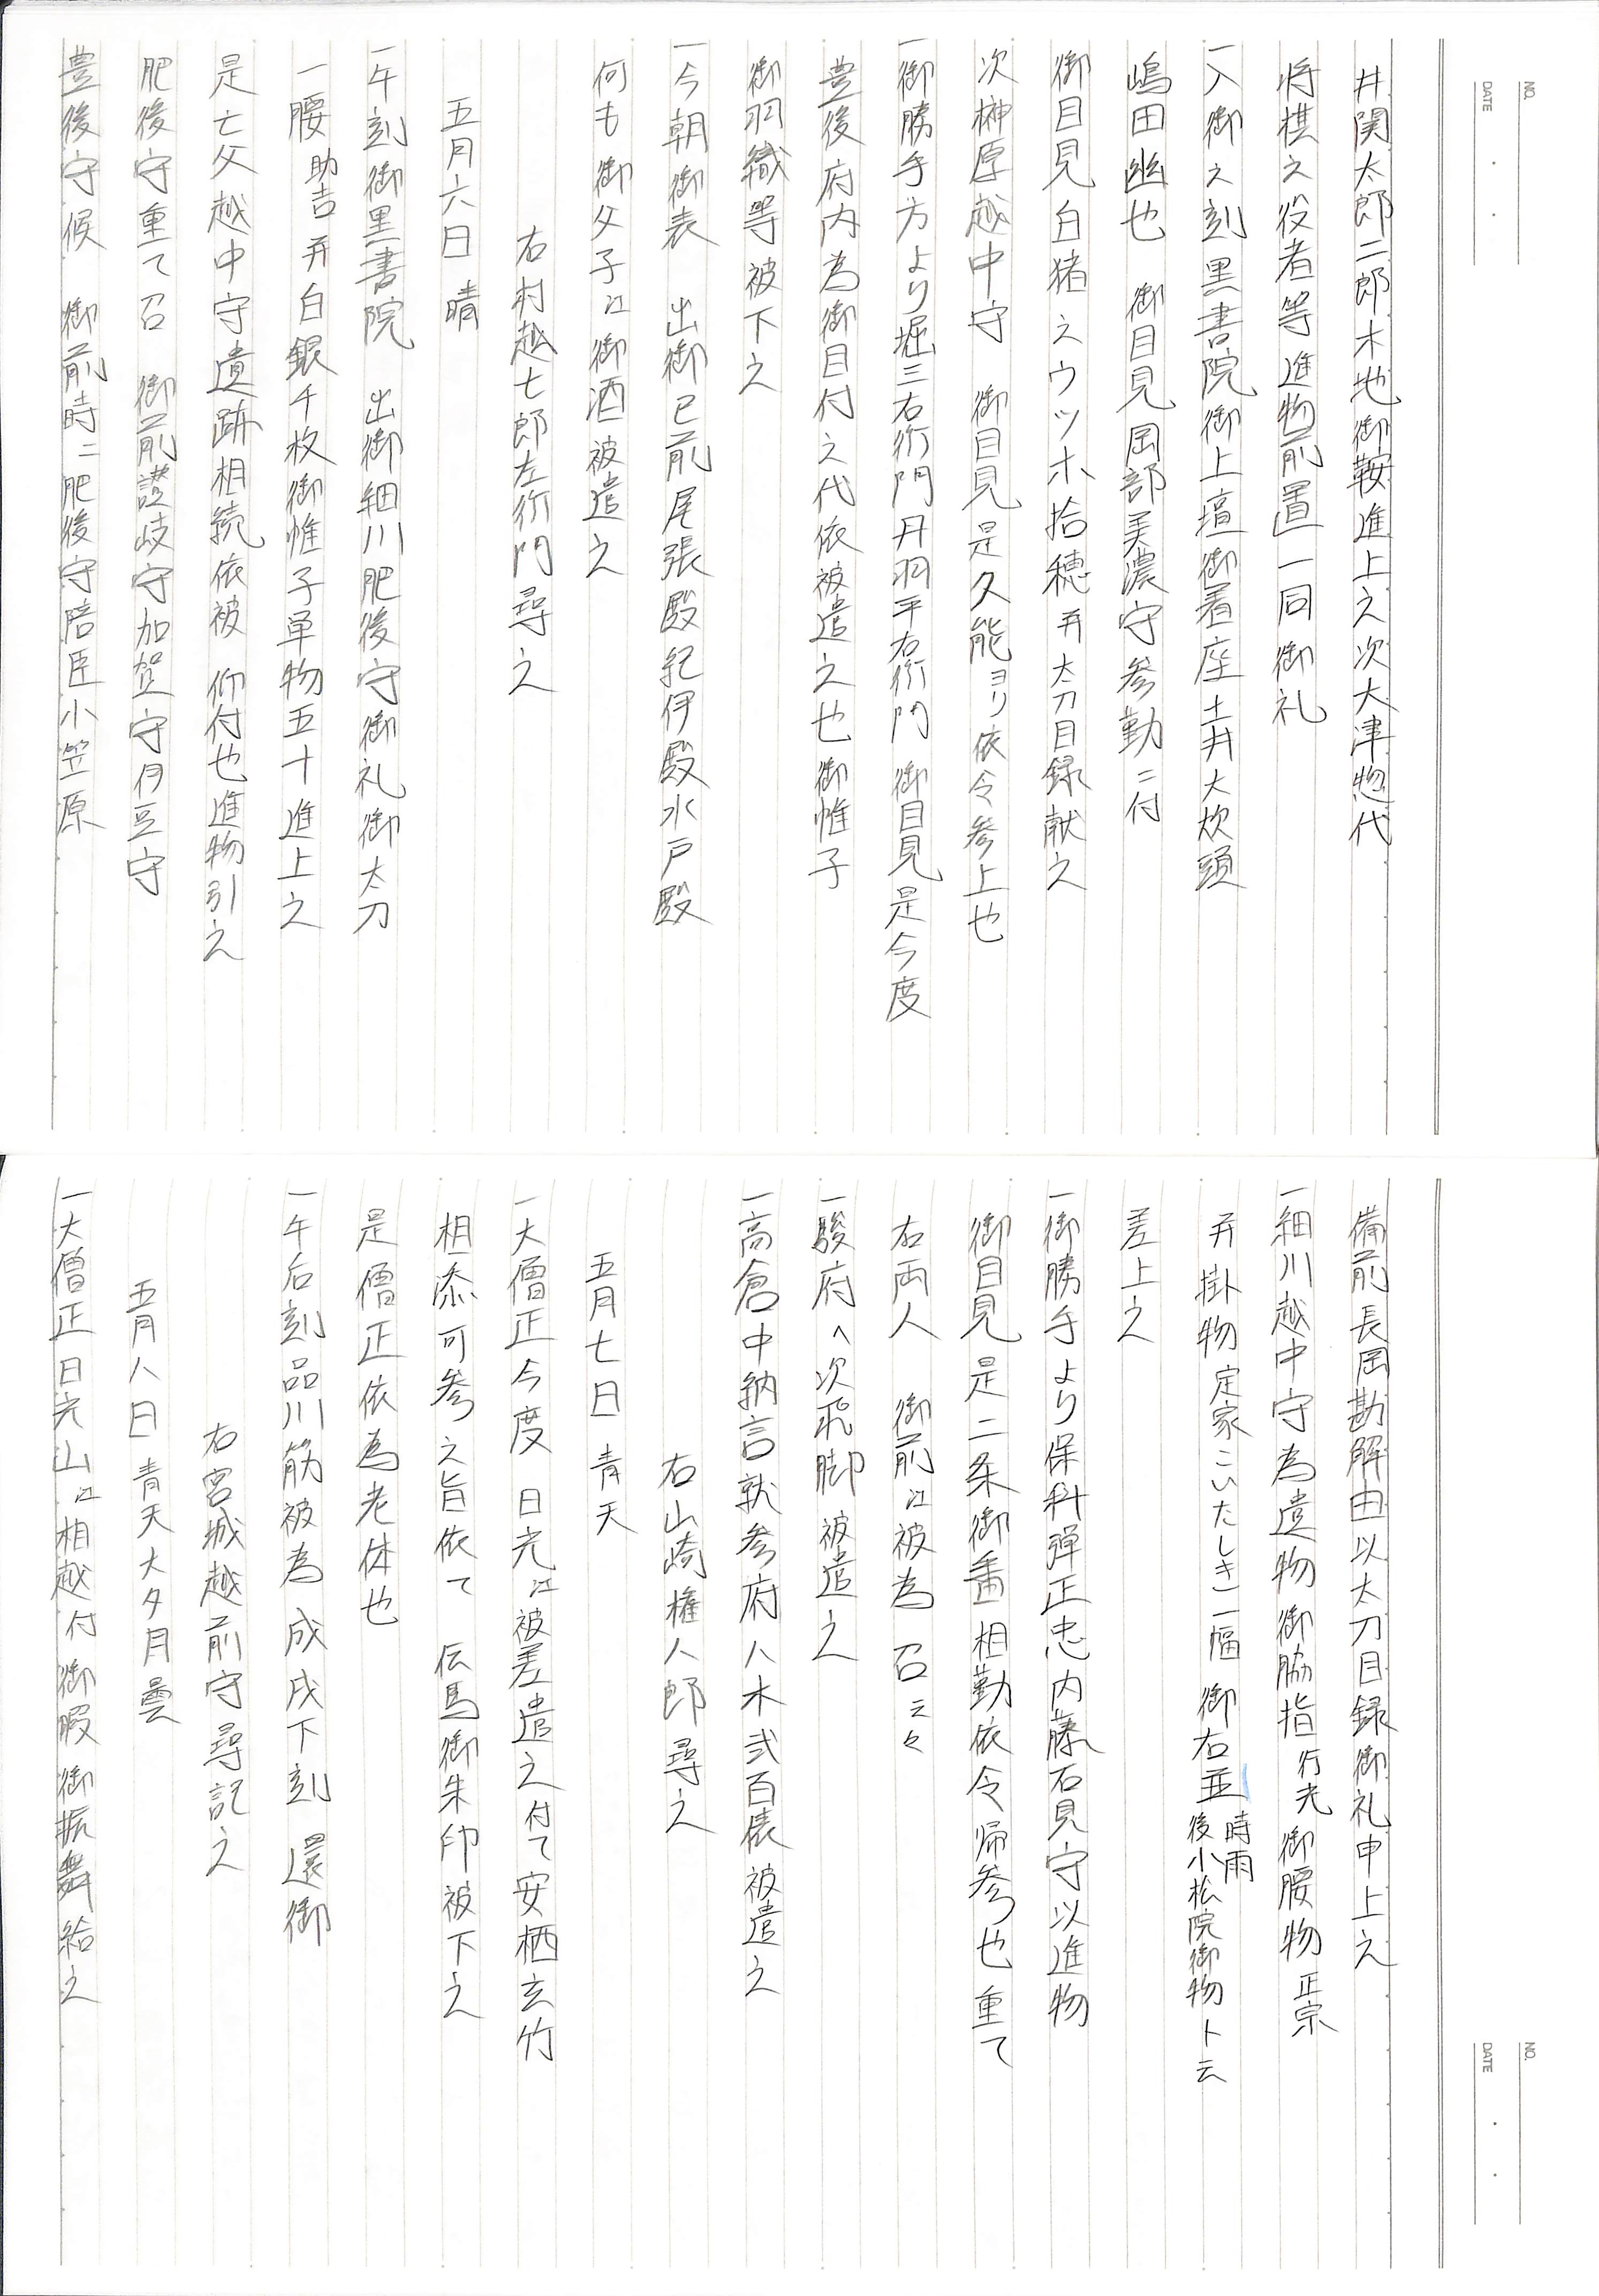 NO.
DATE
井関太郎二郎木地御鞍進上之次大津惣代
将棋之役者等進物前置一同御礼
一入御之刻黒書院御上壇御着座土井大炊頭
嶋田幽也 御目見岡部美濃守参勤ニ付
御目見白猪之ウツホ拾穂并太刀目録献之
次榊原越中守 御目見是久能ヨリ依令参上也
一御勝手方より堀三右衛門丹羽平右衛門御目見是今度
豊後府内為御目付之代依被遣之也御帷子
御羽織等被下之
一今朝御表 出御已前尾張殿紀伊殿水戸殿
何も御父子江御酒被遣之
右村越七郎左衛門尋之
五月六日 晴
一午刻御黒書院 出御細川肥後守御礼御太刀
一腰助吉并白銀千枚御帷子単物五十進上之
是亡父越中守遺跡相続依被 仰付也進物引之
肥後守重て召 御前讃岐守加賀守伊豆守
豊後守候 御前時ニ肥後守陪臣小笠原
NO.
DATE
備前長岡勘解由以太刀目録御礼申上之
一細川越中守為遺物御脇指行光御腰物正宗
并掛物定家こいたしき一幅御右並時雨後小松院御物ト云
差上之
一御勝手より保科弾正忠内藤石見守以進物
御目見是二条御番相勤依令帰参也重て
右両人 御前江被為 召云々
一駿府へ次飛脚被遣之
一高倉中納言就参府八木弐百俵被遣之
右山崎権八郎尋之
五月七日 青天
一大僧正今度日光江被差遣之付て安栖玄竹
相添可参之旨依て 伝馬御朱印被下之
是僧正依為老体也
一午后刻品川筋被為 成戌下刻 還御
右宮城越前守尋記之
五月八日 青天大夕月曇
一大僧正日光山江相越付御暇御振舞給之